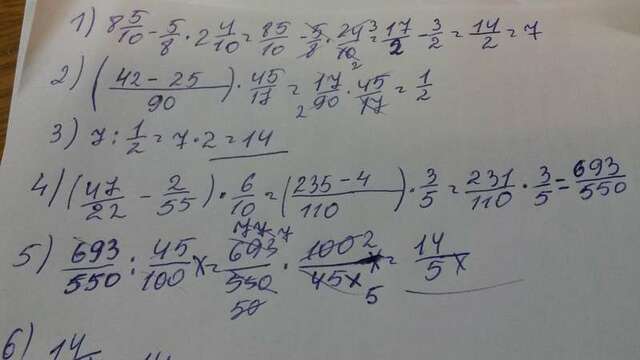 1) 8 5/10 - 5/8 · 2 4/10 = 85/10 - 5/8 · 24/10 3 2 = 17/2 - 3/2 = 14/2 = 7
2) (42 - 25 / 90) · 45/17 = 17/90 · 45/17 2 = 1/2
3) 7 : 1/2 = 7 · 2 = 14
4) (47/22 - 2/55) · 6/10 = (235 - 4 / 110) · 3/5 = 231/110 · 3/5 = 693/550
5) 693/550 : 45/100 x = 77 7 693/550 50 · 100 2/45x 5 = 14/5x
6) 14